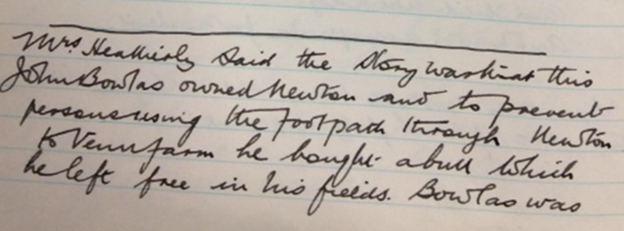 Mrs Heatherly said the story was that this
John Bowlas owned Newton and to prevent
persons using the footpath through Newton
to Venn farm he bought a bull which
he left free in his fields. Bowlas was